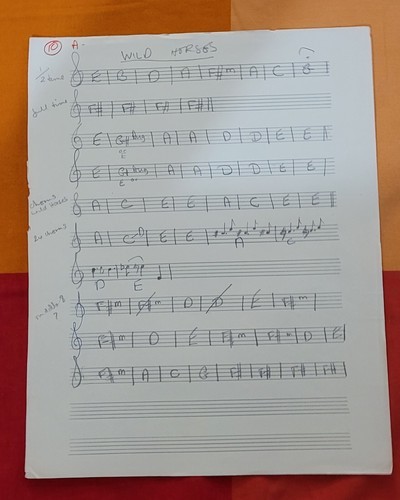 10 A.
WILD HORSES
1/2 time E | G | D | A | F#m | A | C | G
full time F# | F# | F# | F#
E | G# | A | A | D | D | E | E
E | G# | A | A | D | D | E | E
E
chorus wild horses A | C | E | E | A | C | E | E
2nd chorus A | C D | E | E | A C
D E
middle 8 ? F#m | E | D | D | E | F#m
F#m | D | E | F#m | F#m | D | E
F#m | A | C | G | F# | F# | F# | F#